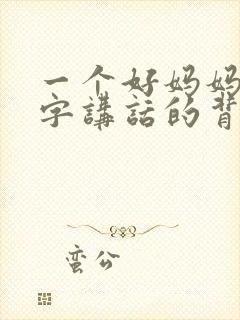 一个好妈妈
字講話的背
蛮公